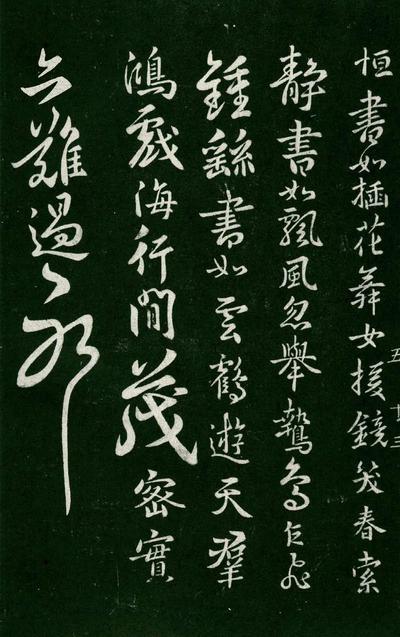 恒書如插花舞女援鏡笑春索
五 廿三
靜書如飄風忽舉鷙鳥乍飛
鍾繇書如雲鶴遊天羣
鴻戲海行間茂密實
亦難過耶